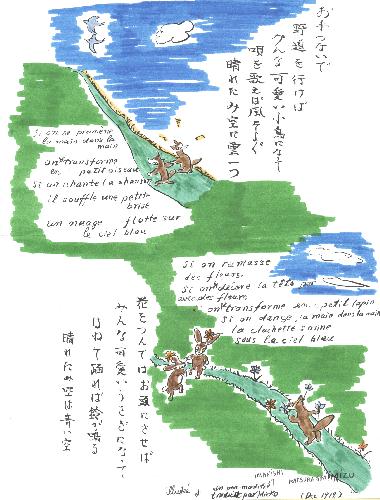 お手つないで
野道を行けば
みんな可愛い小鳥になって
唄を歌えば風そよぐ
晴れたみ空に雲一つ
Si on se promène
la main dans la
main
on transforme
en petit oiseau
Si on chante la chanson
il souffle une petite
brise
un nuage flotte sur
le ciel bleu
Si on ramasse
des fleurs.
Si on décore la tête par
avec des fleurs
on transforme en petit lapin
Si on danse la main dans la main
la clochette sonne
sous le ciel bleu
花をつんではお頭にさせば
みんな可愛いうさぎになって
はねて踊れば鈴が鳴る
晴れたみ空は青い空
traduit par
(Dec 1918)